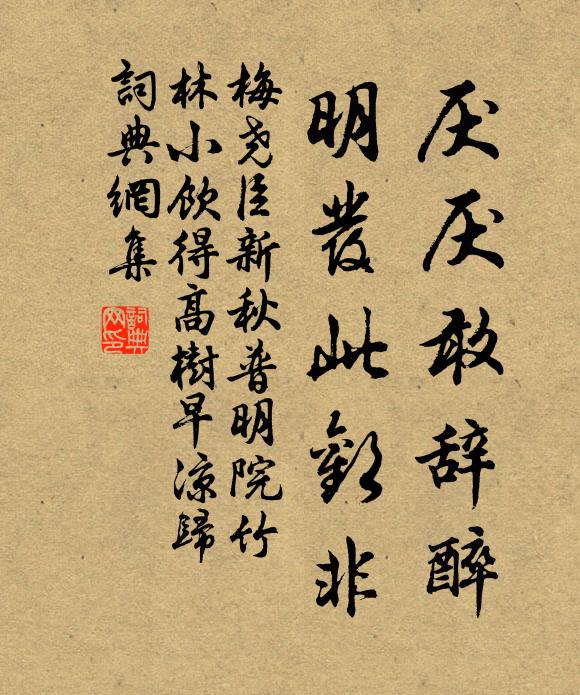 厌厌敢辞醉
明發此歡非
梅尧臣新秋普明院竹
林小飲得高樹早凉歸
詞典網集
詞典網印